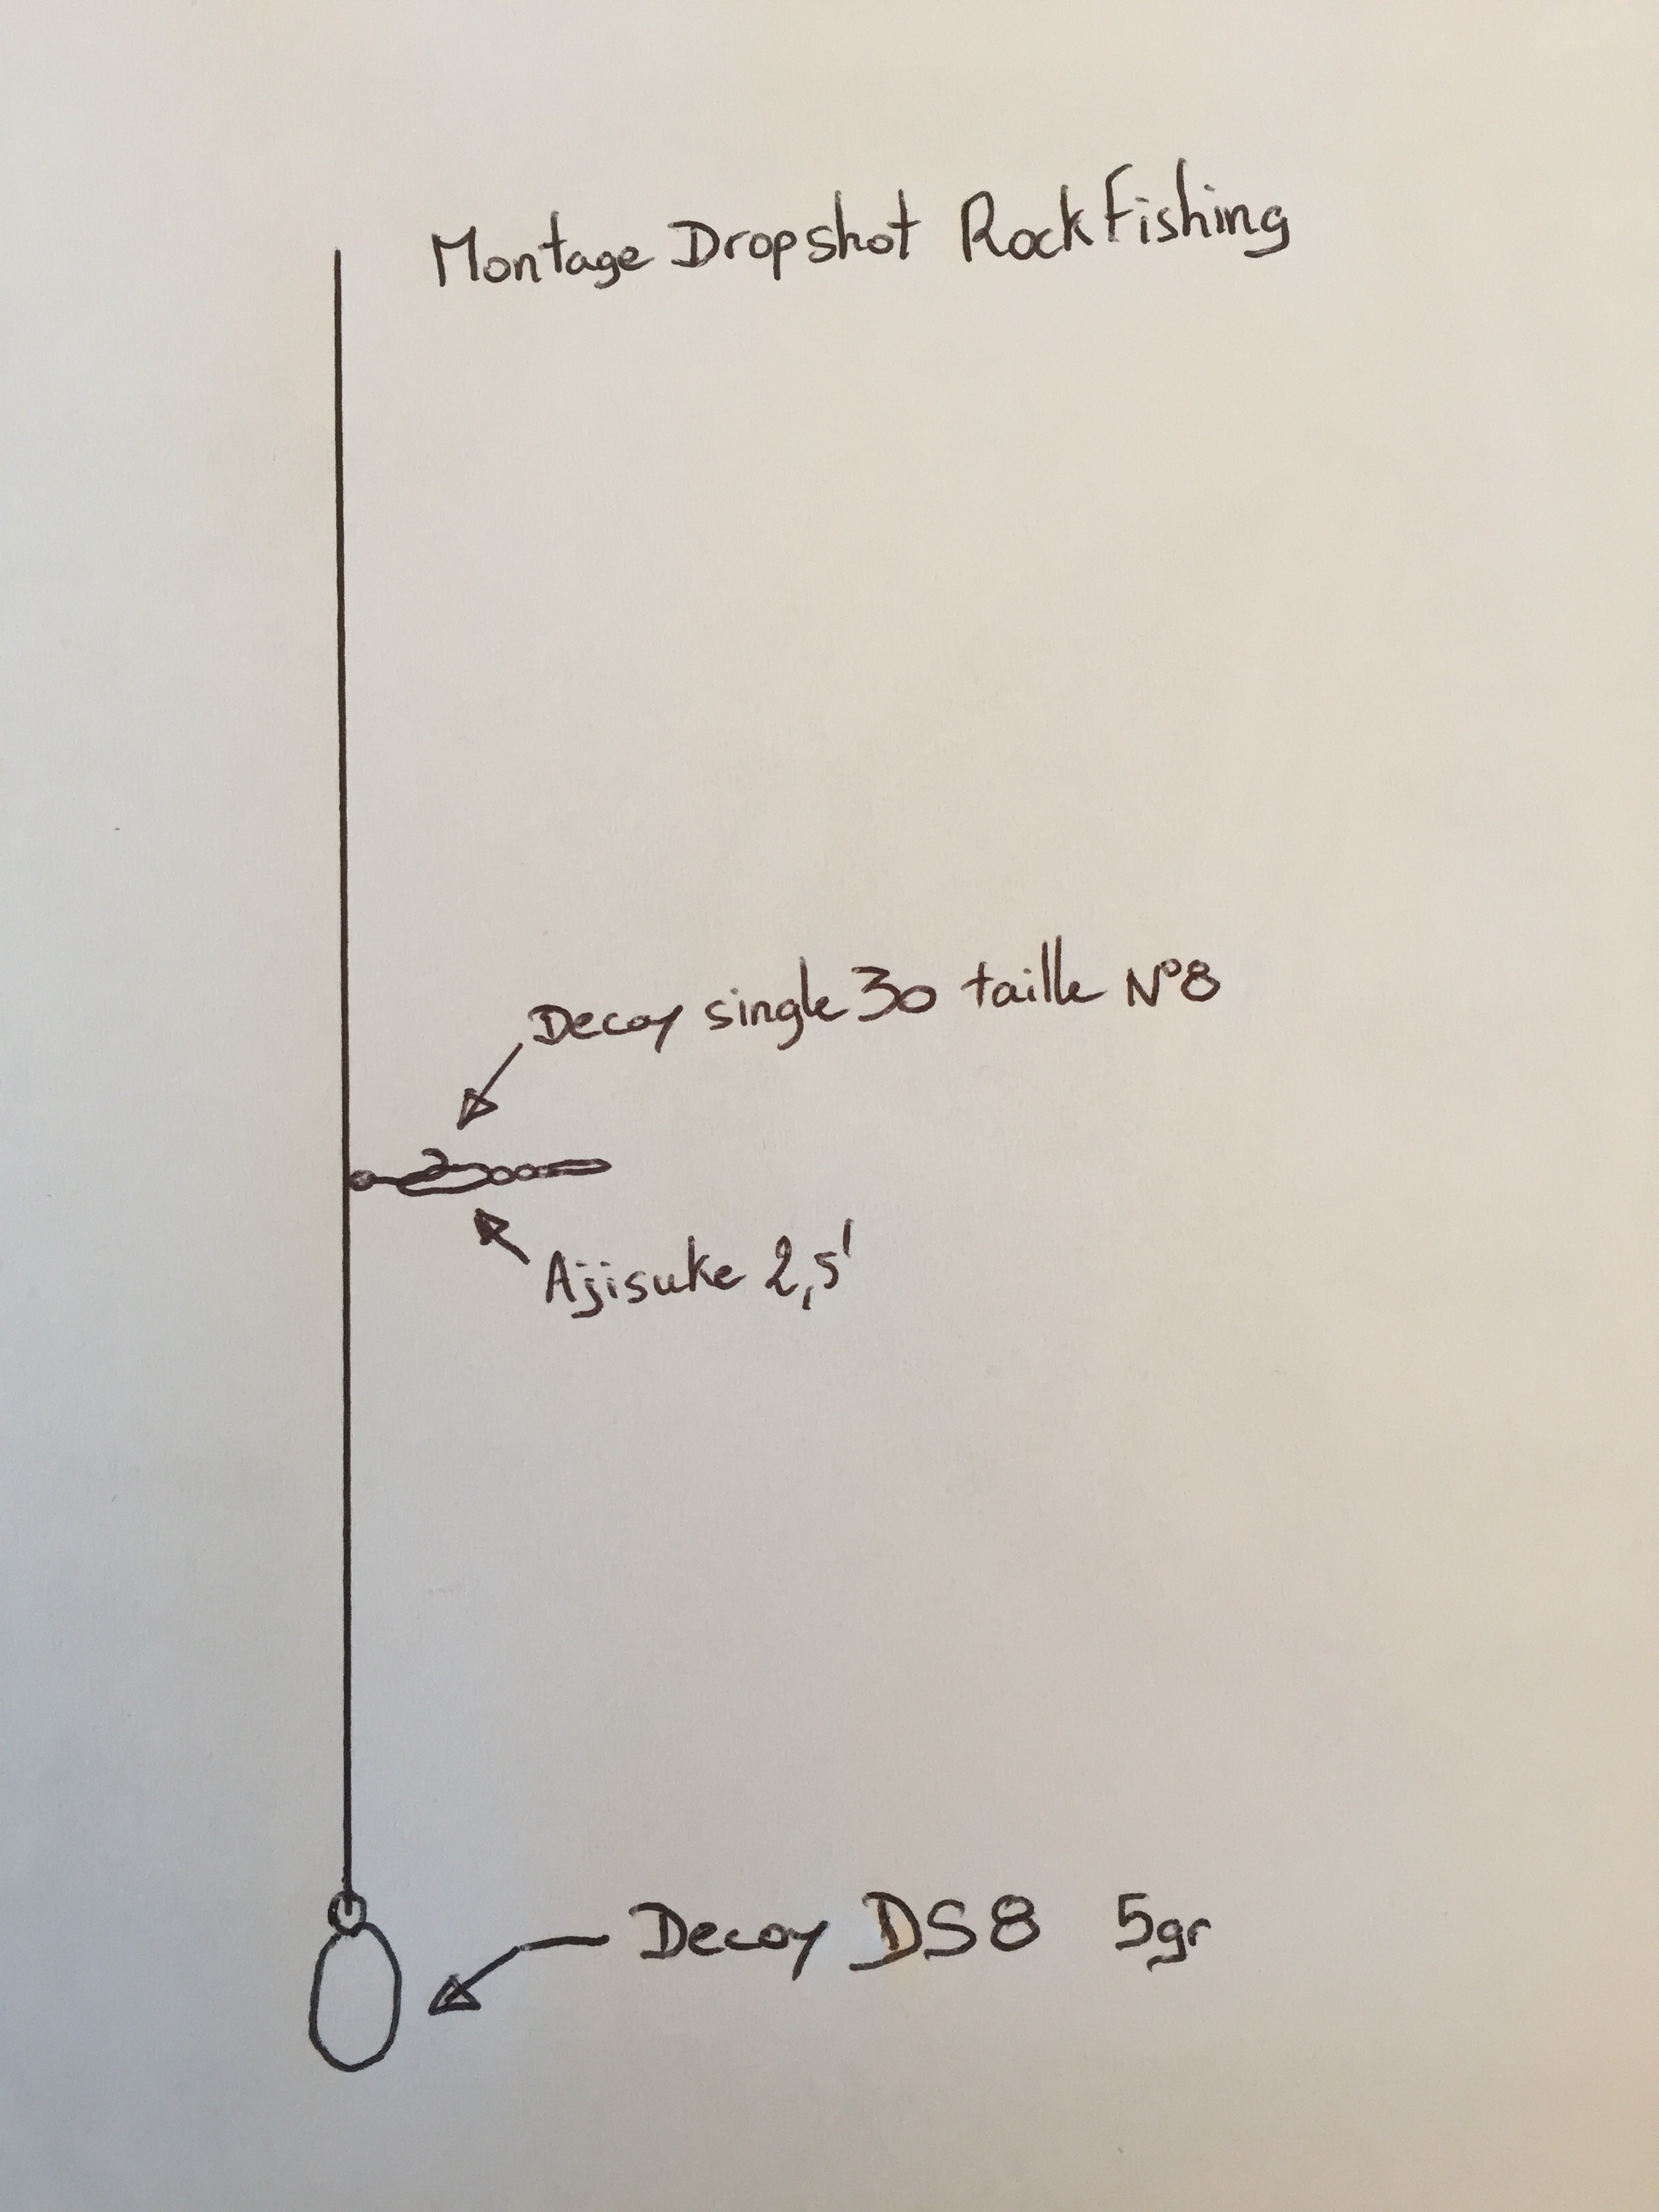 Montage Dropshot RockFishing
Decoy single 30 taille N°8
Ajisuke 2,5'
Decoy DS8 5gr